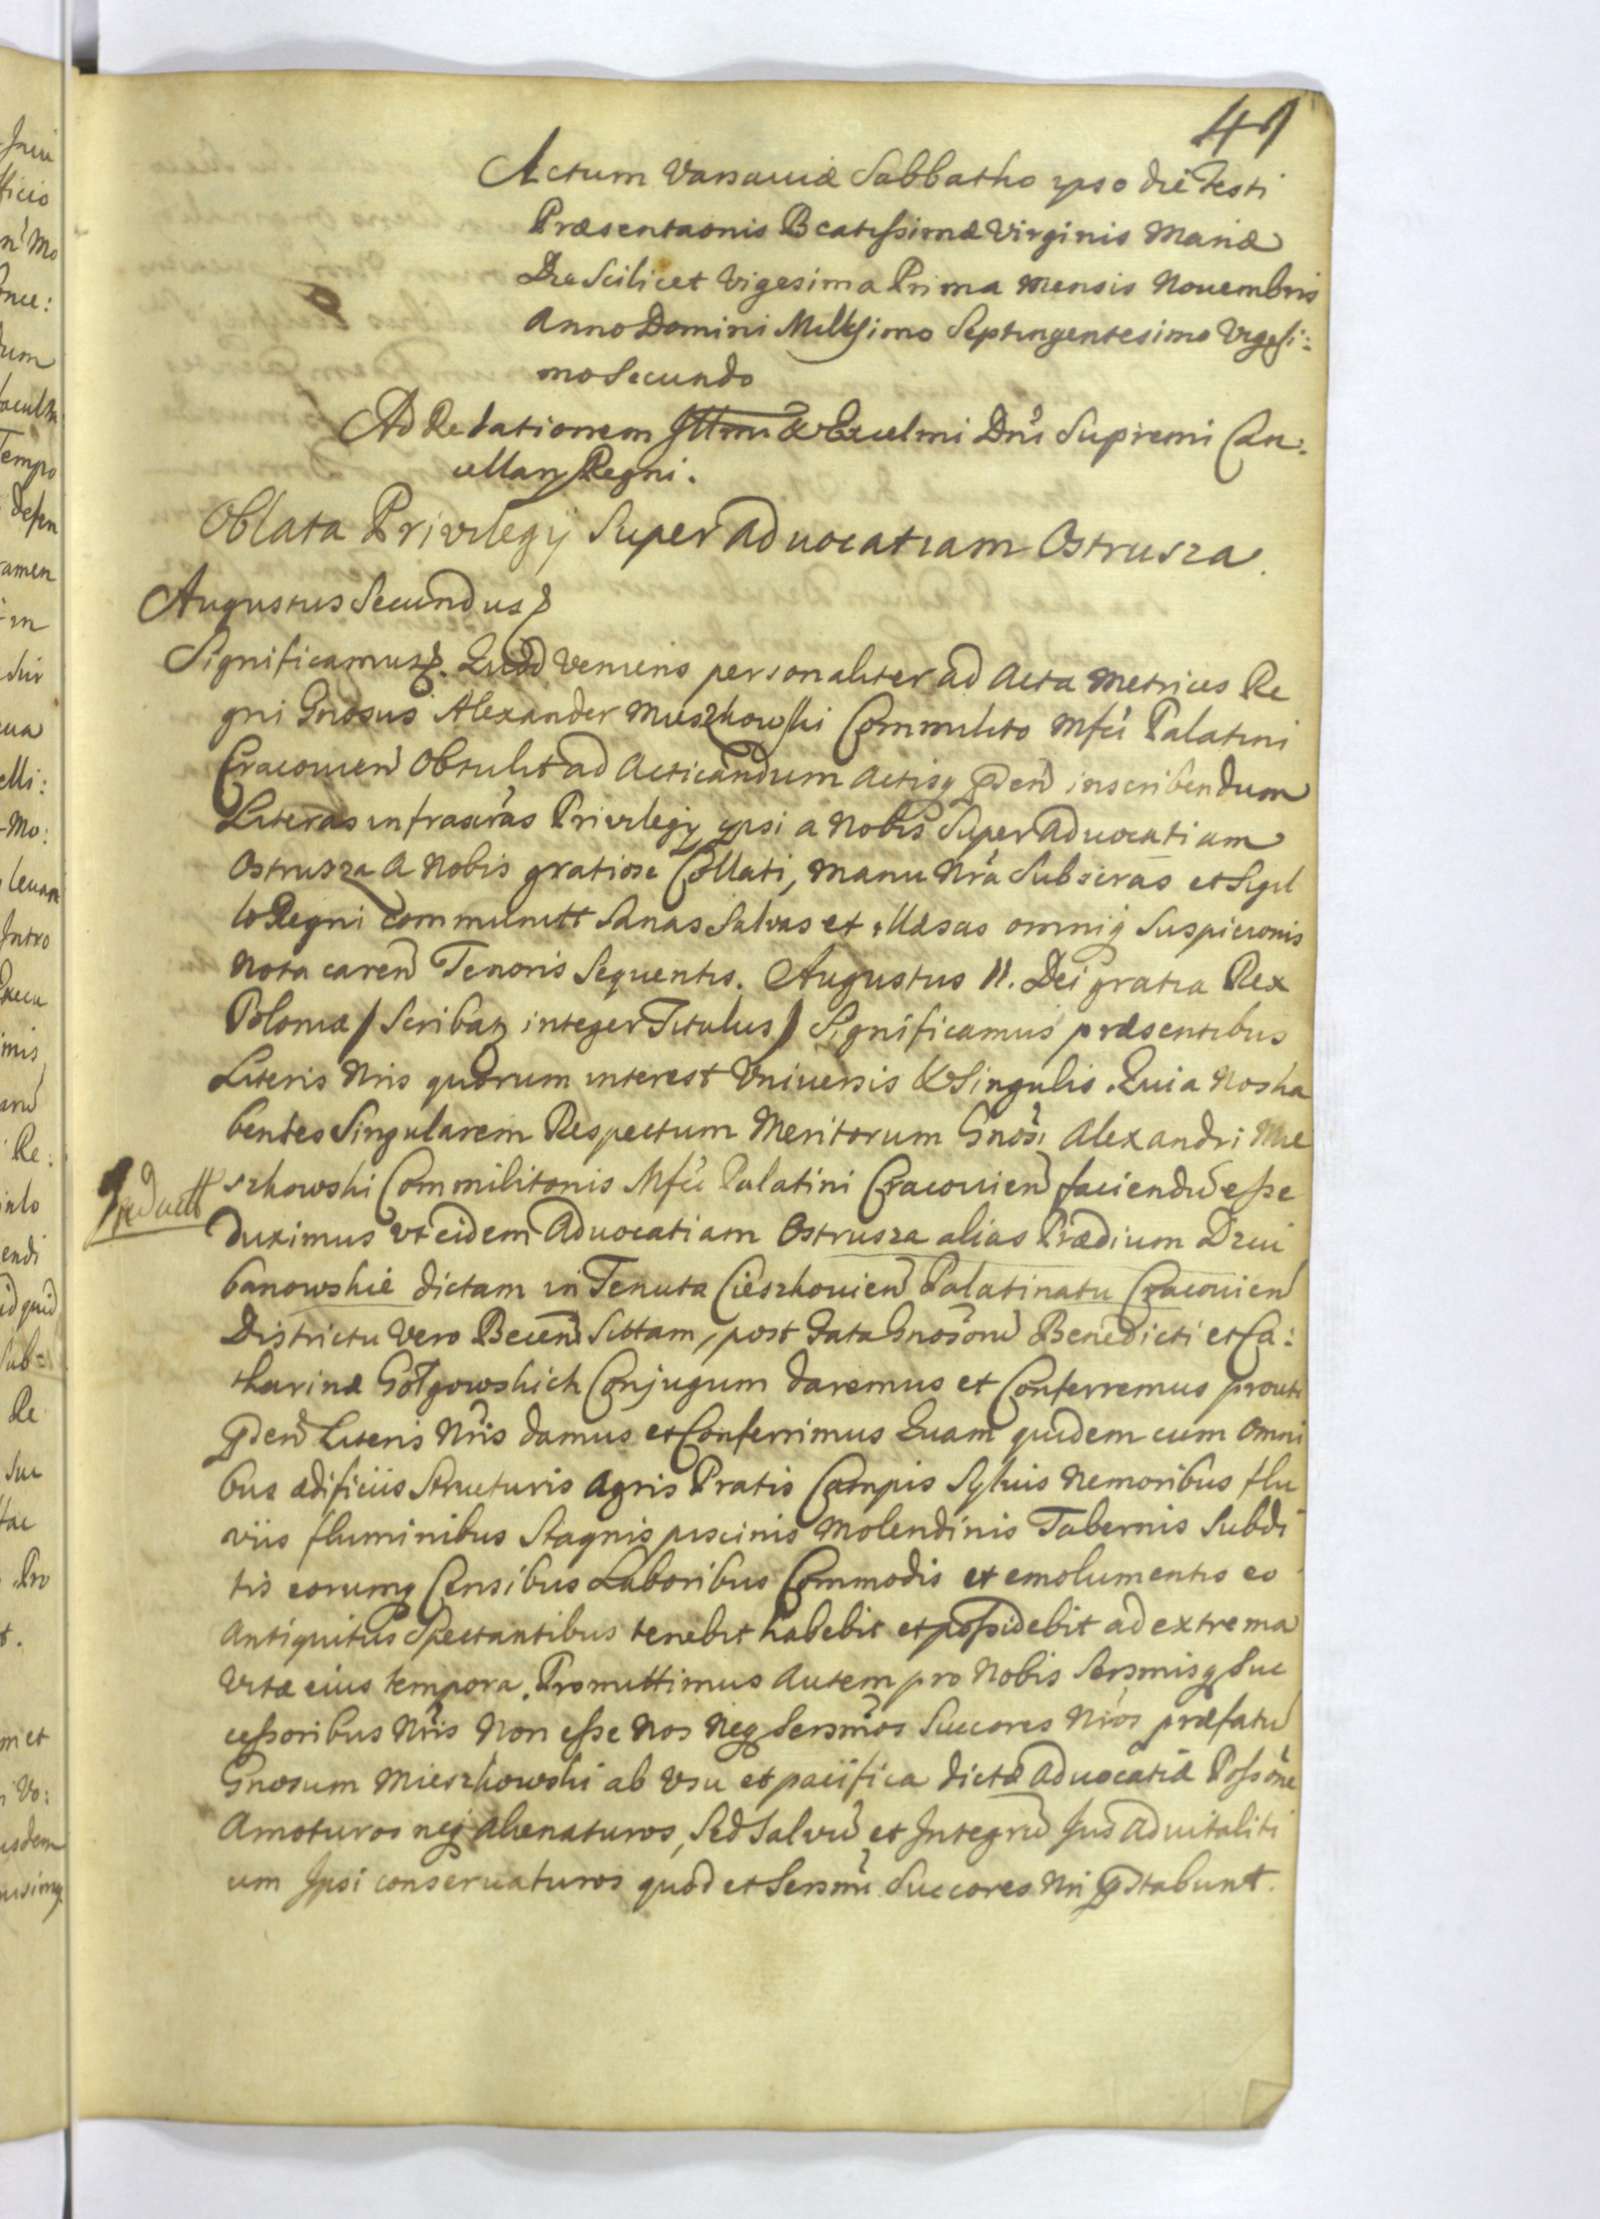 49
Actum Varsaviæ Sabbatho ipso die Festi
Præsentaonis Beatissimæ Virginis Mariæ
Die Scilicet Vigesima Prima mensis Novembris
Anno Domini Millesimo Septingentesimo Vigesi:
mo Secundo
Ad Relationem Illmi & Excelmi Dni Supremi Can:
cellarij Regni.
Oblata Privilegij Super Advocatiam Ostrusza
Augustus Secundus
Significamus. Quod Veniens personaliter ad Acta Metrices Re
gni Gnosus Alexander Mieszkowski Commilito Mfci Palatini
Cracovien Obtulit ad Acticandum Actisq pden inscribendum
Literas infrascras Privilegij ipsi a Nobis Super Advocatiam
Ostrusza A Nobis gratiose Collati, Manu Nra Subscras et Sigil
lo Regni Communitt Sanas Salvas et illæsas omniq Suspicionis
Nota caren Tenoris Sequentis. Augustus II. Dei gratia Rex
Poloniæ / Scribat integer Titulus / Significamus præsentibus
Literis Nris quorum interest Universis & Singulis. Quia Nos ha
bentes Singularem Respectum Meritorum Gnosi Alexandri Mie
szkowski Commilitonis Mfci Palatini Cracovien faciendu esse
duximus vt eidem Advocatiam Ostrusza alias Prædium Dziu
banowskie dictam in Tenuta Cieszkovien Palatinatu Cracovien
Districtu Vero Biecen Sittam, post data Gnosoru Benedicti et Ca:
tharinæ Gołgowskich Conjugum daremus et Conferremus prout
pden Literis Nris damus et Conferrimus Quam quidem cum Omni
bus ædificiis Structuris Agris Pratis Campis Sylvis Nemoribus flu
viis fluminibus Stagnis piscinis Molendinis Tabernis Subdi
tis eorumq Censibus Laboribus Commodis et emolumentis eo
Antiquitus Spectantibus tenebit habebit et possidebit ad extrema
Vitæ eius tempora. Promittimus Autem pro Nobis Sersmisq Suc
cessoribus Nris Non esse Nos Neq Sersmos Succores Nros præfatu
Gnosum Mieszkowski ab Vsu et pacifica dictæ Advocatiæ Possone
Amoturos neq Alienaturos, Sed Salvu et Integru Jus Advitaliti
um Ipsi conservaturos quod et Sersmi Succores Nri pstabunt.